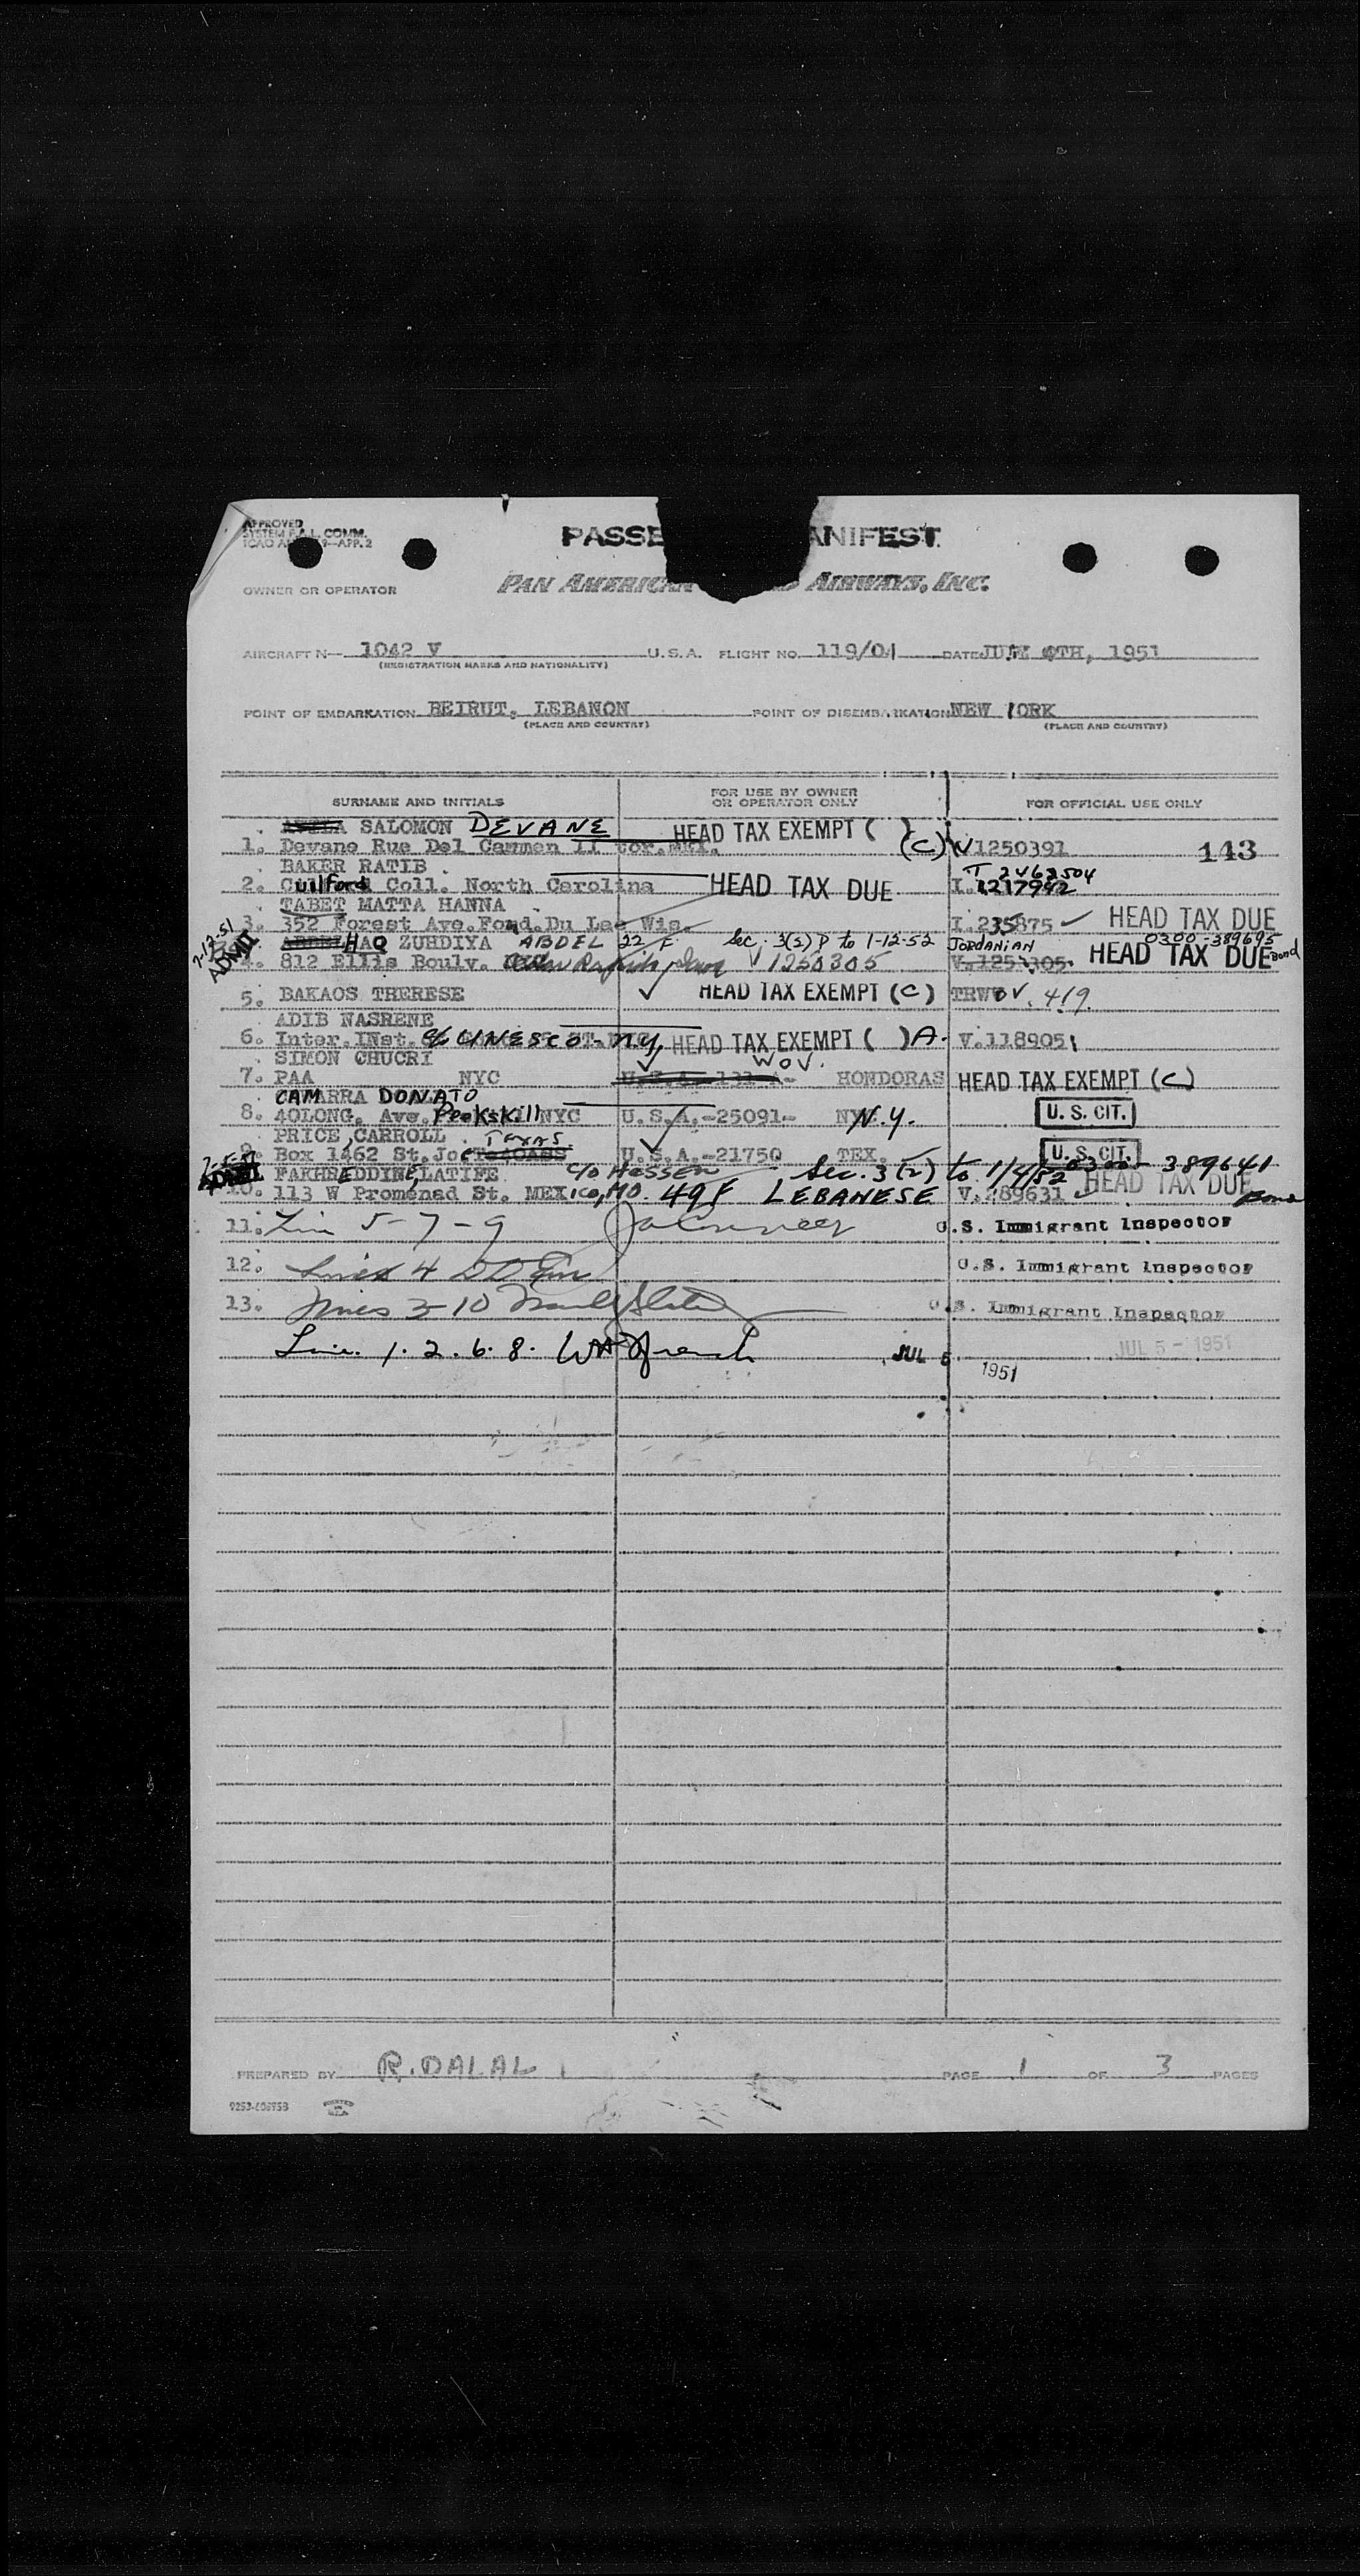 APPROVED
SYSTEM F.A.L. COMM.
ICAO 9—APP. 2
PASSE ANIFEST
OWNER OR OPERATOR PAN AMERICAN AIRWAYS, INC.
AIRCRAFT N— 1042 V U.S.A. FLIGHT NO. 119/04 DATE 4TH, 1951
(REGISTRATION MARKS AND NATIONALITY)
POINT OF EMBARKATION BEIRUT, LEBANON POINT OF DISEMBARKATION NEW YORK
(PLACE AND COUNTRY) (PLACE AND COUNTRY)
SURNAME AND INITIALS FOR USE BY OWNER OR OPERATOR ONLY FOR OFFICIAL USE ONLY
SALOMON DEVANE HEAD TAX EXEMPT ( )
1. Devane Rue Del Carmen 11 (C) V1250391 143
BAKER RATIB
2. Guilford Coll. North Carolina HEAD TAX DUE I.1217942
TABET MATTA HANNA
3. 352 Forest Ave. Fond. Du Lac Wis. I.235875 HEAD TAX DUE
7-12-51 HAQ ZUHDIYA ABDEL 22 F Sec. 3(2) P to 1-12-52 JORDANIAN 0300-389695
ADMIT. 4. 812 Ellis Boulv. Cedar Rapids, Iowa V 1250305 HEAD TAX DUE Bond
5. BAKAOS THERESE HEAD TAX EXEMPT (C) 419
ADIB NASRENE
6. Inter. INst. % UNESCO - NY, HEAD TAX EXEMPT ( ) A. V.118905
SIMON CHUCRI WOV.
7. PAA NYC U.S.A.-131-A- HONDORAS HEAD TAX EXEMPT (C)
CAMARRA DONATO
8. 40LONG. Ave. Peekskill NYC U.S.A.-25091- N.Y. U. S. CIT.
PRICE, CARROLL TEXAS
9. Box 1462 St. Jo U.S.A.-21750 TEX. U. S. CIT.
FAKHREDDINE, LATIFE C/O HASSEN Sec. 3(2) to 1/4/52 0300-389641
10. 113 W Promenad St. MEXICO, MO. 49F LEBANESE V.289631 HEAD TAX DUE Bond
11. Line 5-7-9 U.S. Immigrant Inspector
12. Lines 4 U.S. Immigrant Inspector
13. Lines 3-10 U.S. Immigrant Inspector
Line. 1. 2. 6. 8. WA French JUL 5 1951 JUL 5 - 1951
PREPARED BY R. DALAL PAGE 1 OF 3 PAGES
PRINTED IN U.S.A.